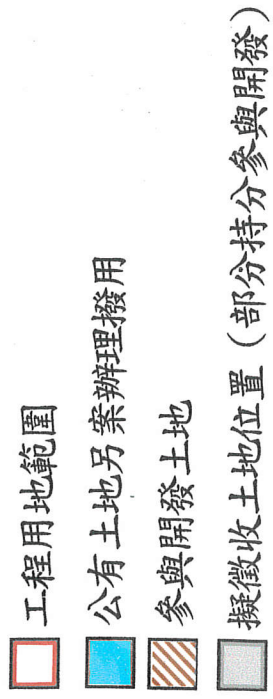 工程用地範圍
公有土地另案辦理撥用
參與開發土地
擬徵收土地位置（部分持分參與開發）